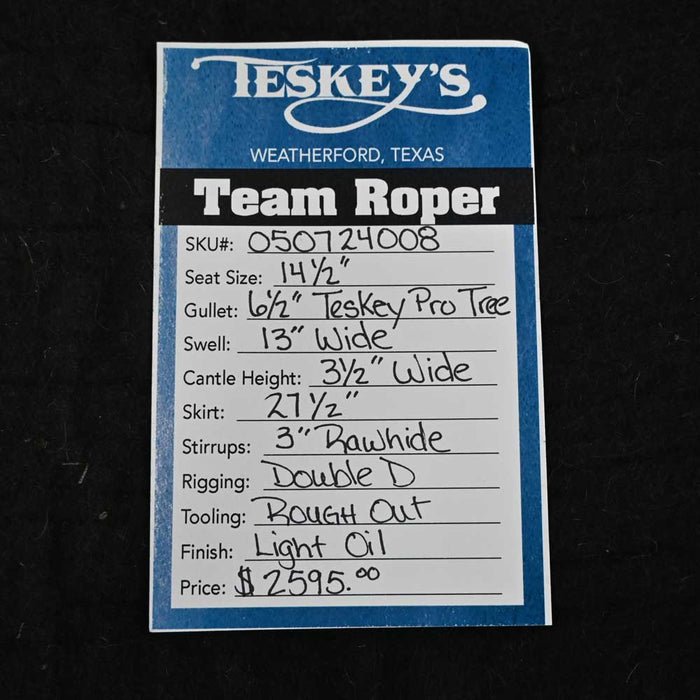 TESKEY'S
WEATHERFORD, TEXAS
Team Roper
SKU#: 050724008
Seat Size: 14½"
Gullet: 6½" Teskey Pro Tree
Swell: 13" Wide
Cantle Height: 3½" Wide
Skirt: 27½"
Stirrups: 3" Rawhide
Rigging: Double D
Tooling: ROUGH Out
Finish: Light Oil
Price: $2595.00